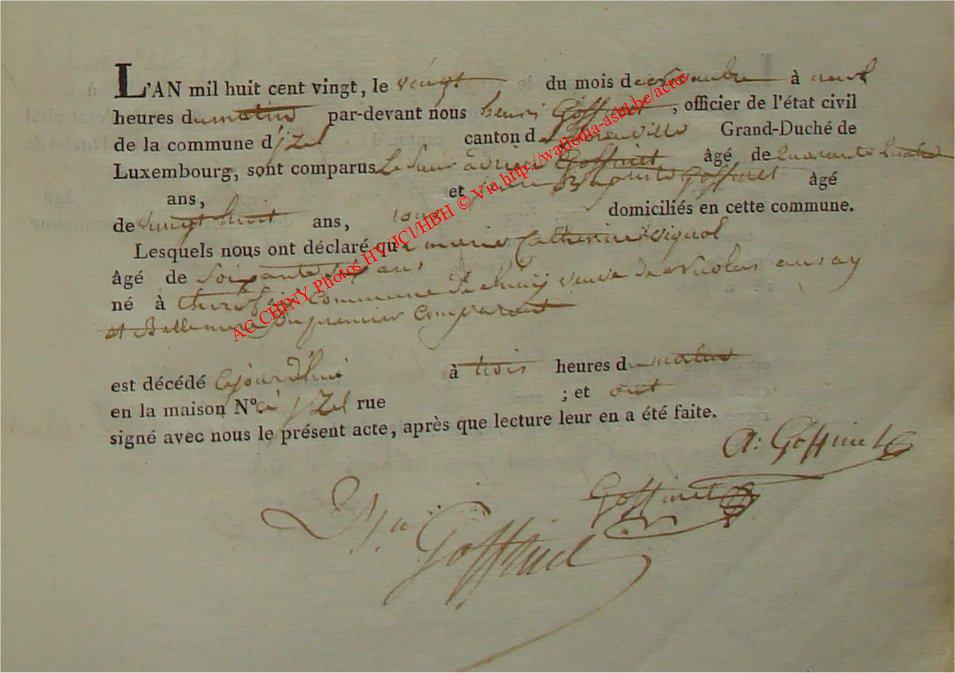 L'AN mil huit cent vingt, le vingt du mois de à neuf
heures du matin par-devant nous henri Goffinet, officier de l'état civil
de la commune d'jzel canton de florenville Grand-Duché de
Luxembourg, sont comparus Le Sieur adrien Goffinet âgé de quarante
ans, et jean Baptiste Goffinet âgé
de vingt huit ans, tous domiciliés en cette commune.
Lesquels nous ont déclaré que marie Catherine vignol
âgé de Soixante six ans
né à Commune de chiny veuve de Nicolas
et Bellemere du premier Comparant
est décédé Cejourd'hui à trois heures du matin
en la maison N° à jzel rue ; et ont
signé avec nous le présent acte, après que lecture leur en a été faite.
A: Goffinet
Goffinet
Goffinet
AC CHINY Photos HV/JCl/HBH © Via http://wallonia-asbl.be/actes